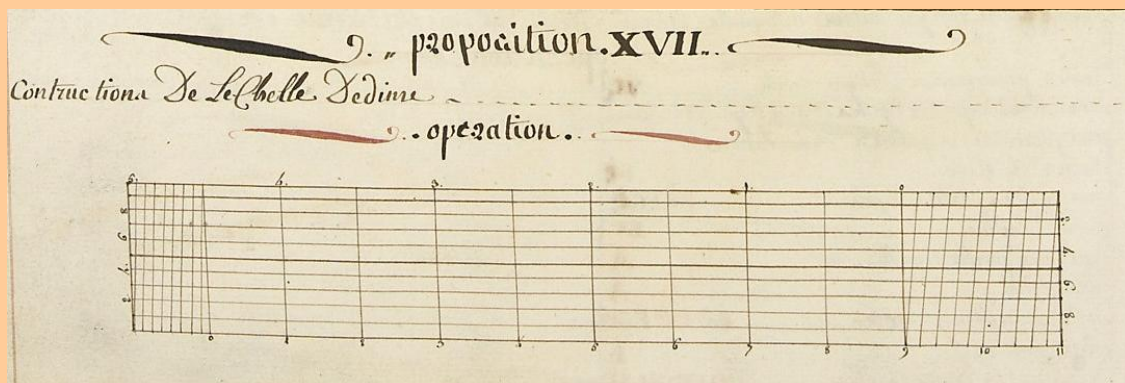 propocition. XVII..
Contructiona De LeChelle Dedime
.. operation..
5. 4. 3. 2. 1. 0
8 2.
6 4.
4. 6.
2 8.
0 1 2 3 4 5 6 7 8 9 10 11